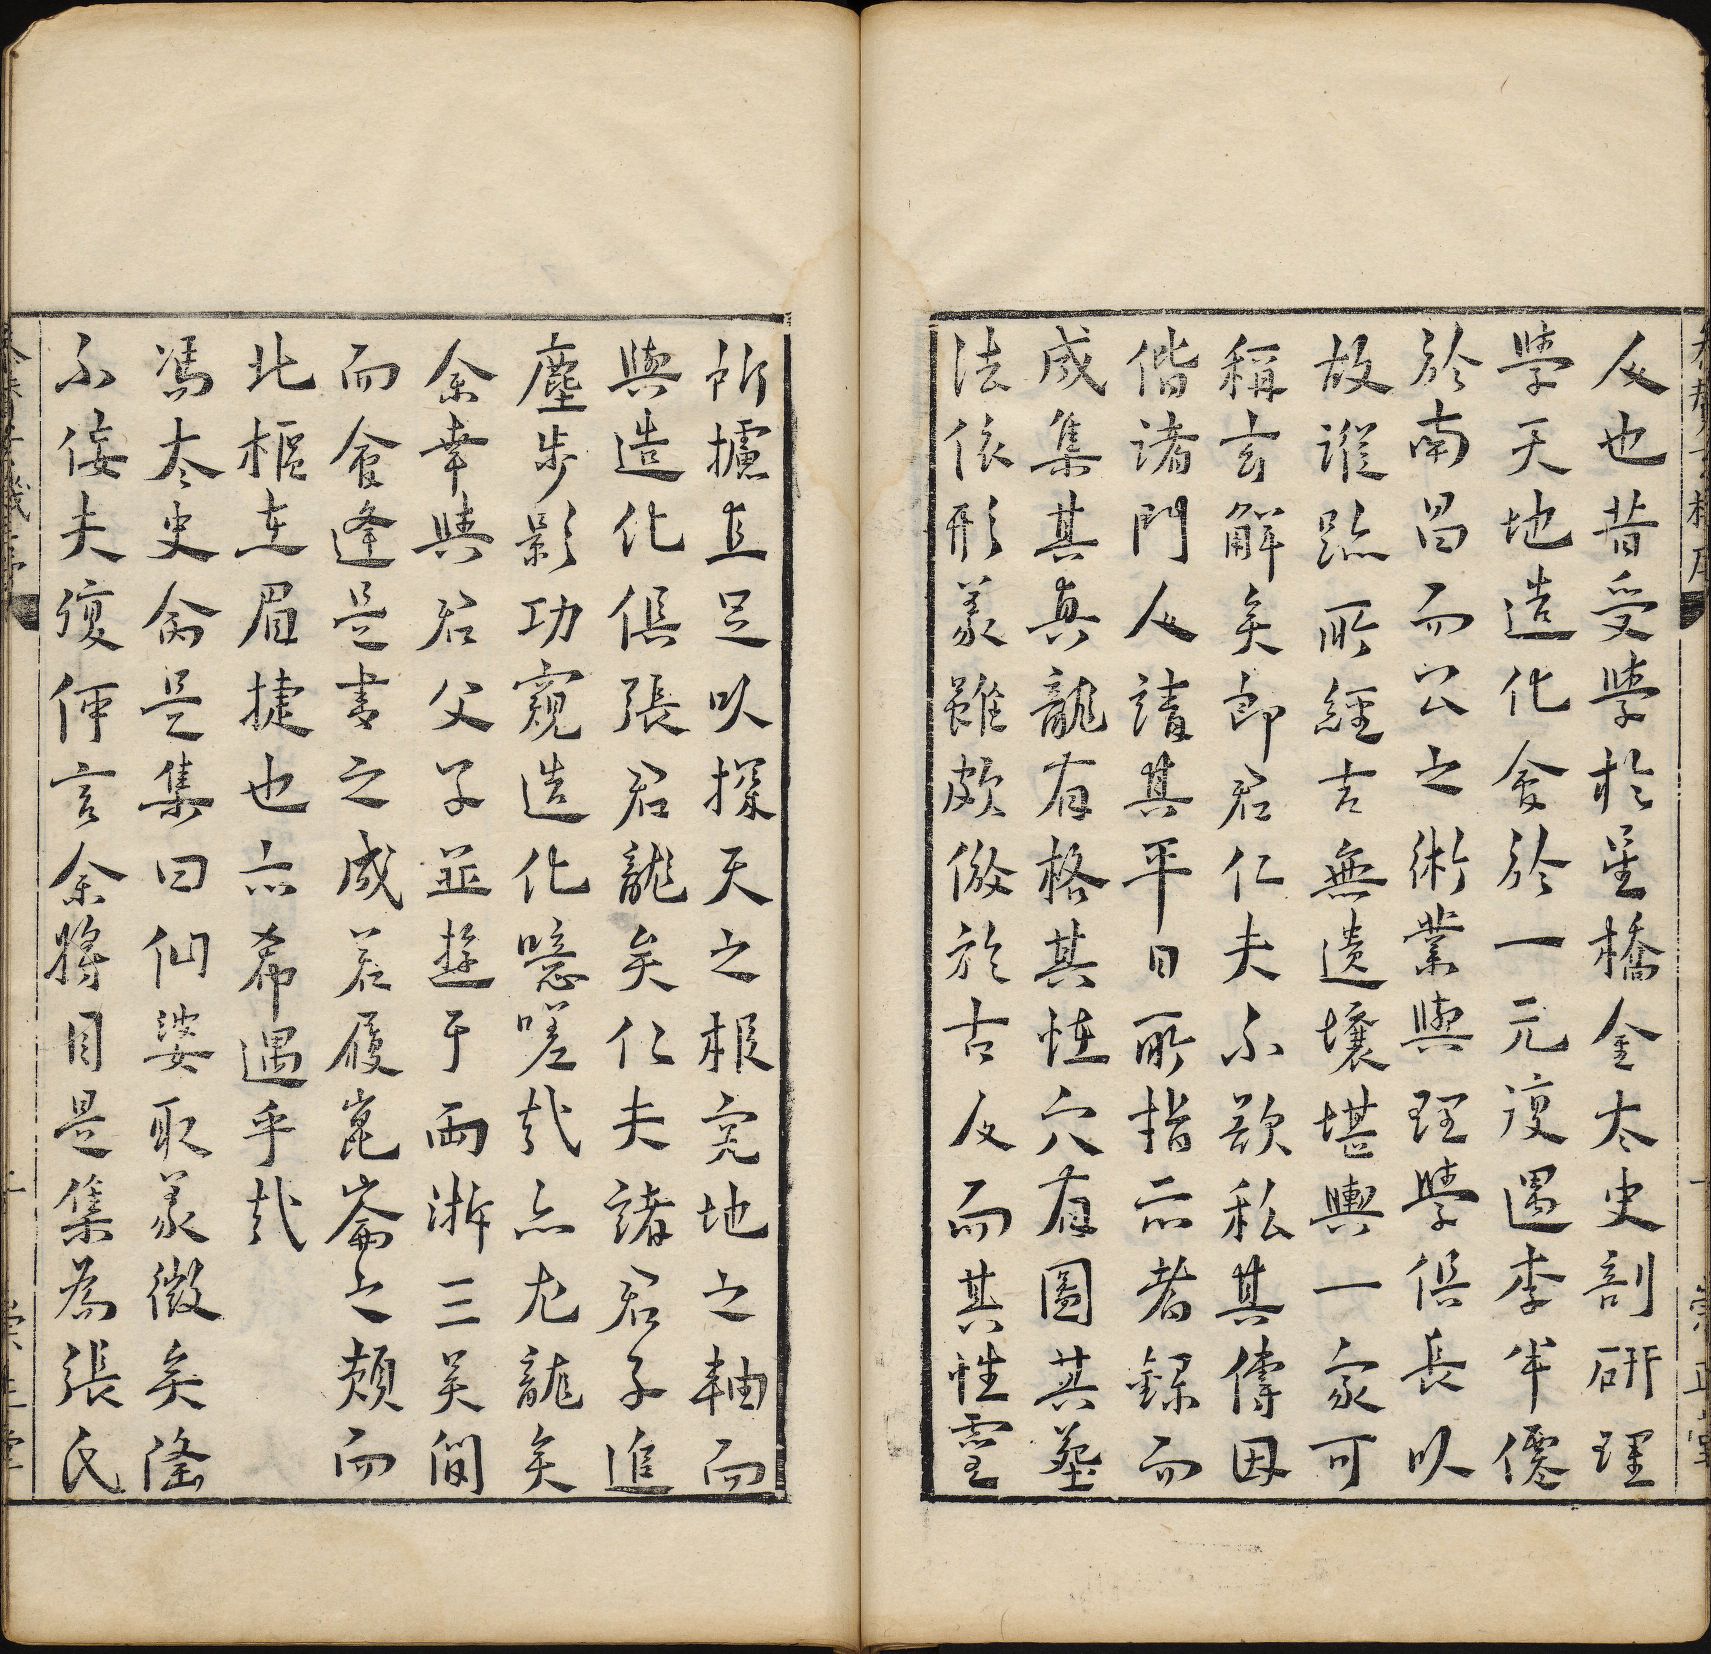 人也昔受學於星橋金太史剖研理
學天地造化會於一元復遇李半僊
於南昌而公之術業與理學俱長以
故蹤跡所經吉無遺壤堪輿一家可
稱玄解矣郎君仁夫不欲私其傳因
偕諸門人請其平日所指示者錄而
成集其真龍有格其怪穴有圖其葬
法依形義雖頗倣於古人而其性靈
所攄直足以探天之根究地之軸而
與造化俱張君龍矣仁夫諸君子進
塵步影功窺造化噫嗟哉亦尤龍矣
余幸與君父子並遊于兩浙三吴間
而會逢是書之成若履崑崙之頰而
北樞在眉捷也亦希遇乎哉
馮太史命是集曰仙婆取義微矣滛
不佞夫復何言余將目是集為張氏